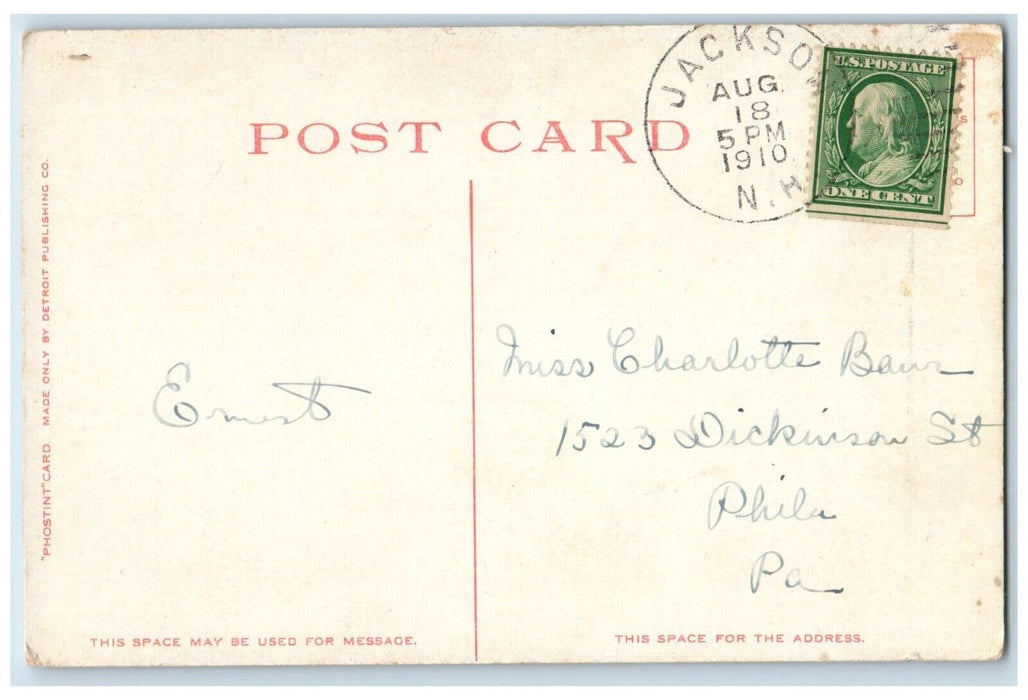 POST CARD
JACKSON
AUG.
18
5 PM
1910
N.H.
U.S. POSTAGE
ONE CENT
"PHOSTINT" CARD MADE ONLY BY DETROIT PUBLISHING CO.
Ernest
Miss Charlotte Baur
1523 Dickinson St
Phila
Pa
THIS SPACE MAY BE USED FOR MESSAGE.
THIS SPACE FOR THE ADDRESS.